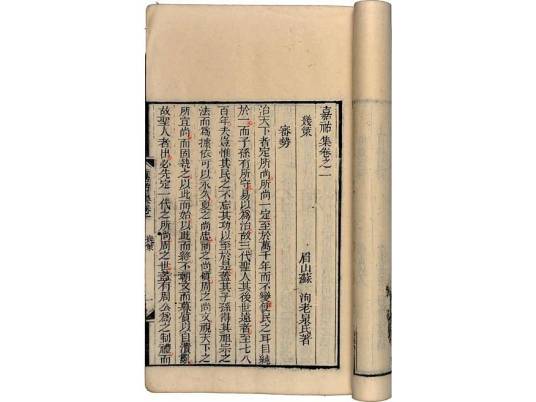 嘉祐集卷之一
幾策
眉山蘇 洵老泉氏著
審勢
治天下者定所尚所尚一定至於萬千年而不變使民之耳目純
於一而子孫有所守易以爲治故三代聖人其後世遠者至七八
百年夫豈惟其民之不忘其功以至於是蓋其子孫得其祖宗之
法而爲據依可以永久夏之尚忠商之尚質周之尚文視天下之
所宜尚而固執之以此而始以此而終不朝文而暮質以自潰亂
故聖人者出必先定一代之所尚周之世蓋有周公爲之制禮而
幾策